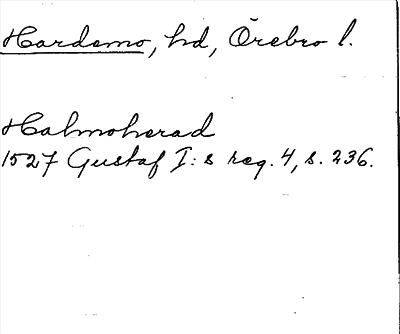 Hardemo, hd, Örebro l.
Halmoherad
1527 Gustaf I:s reg. 4, s. 236.